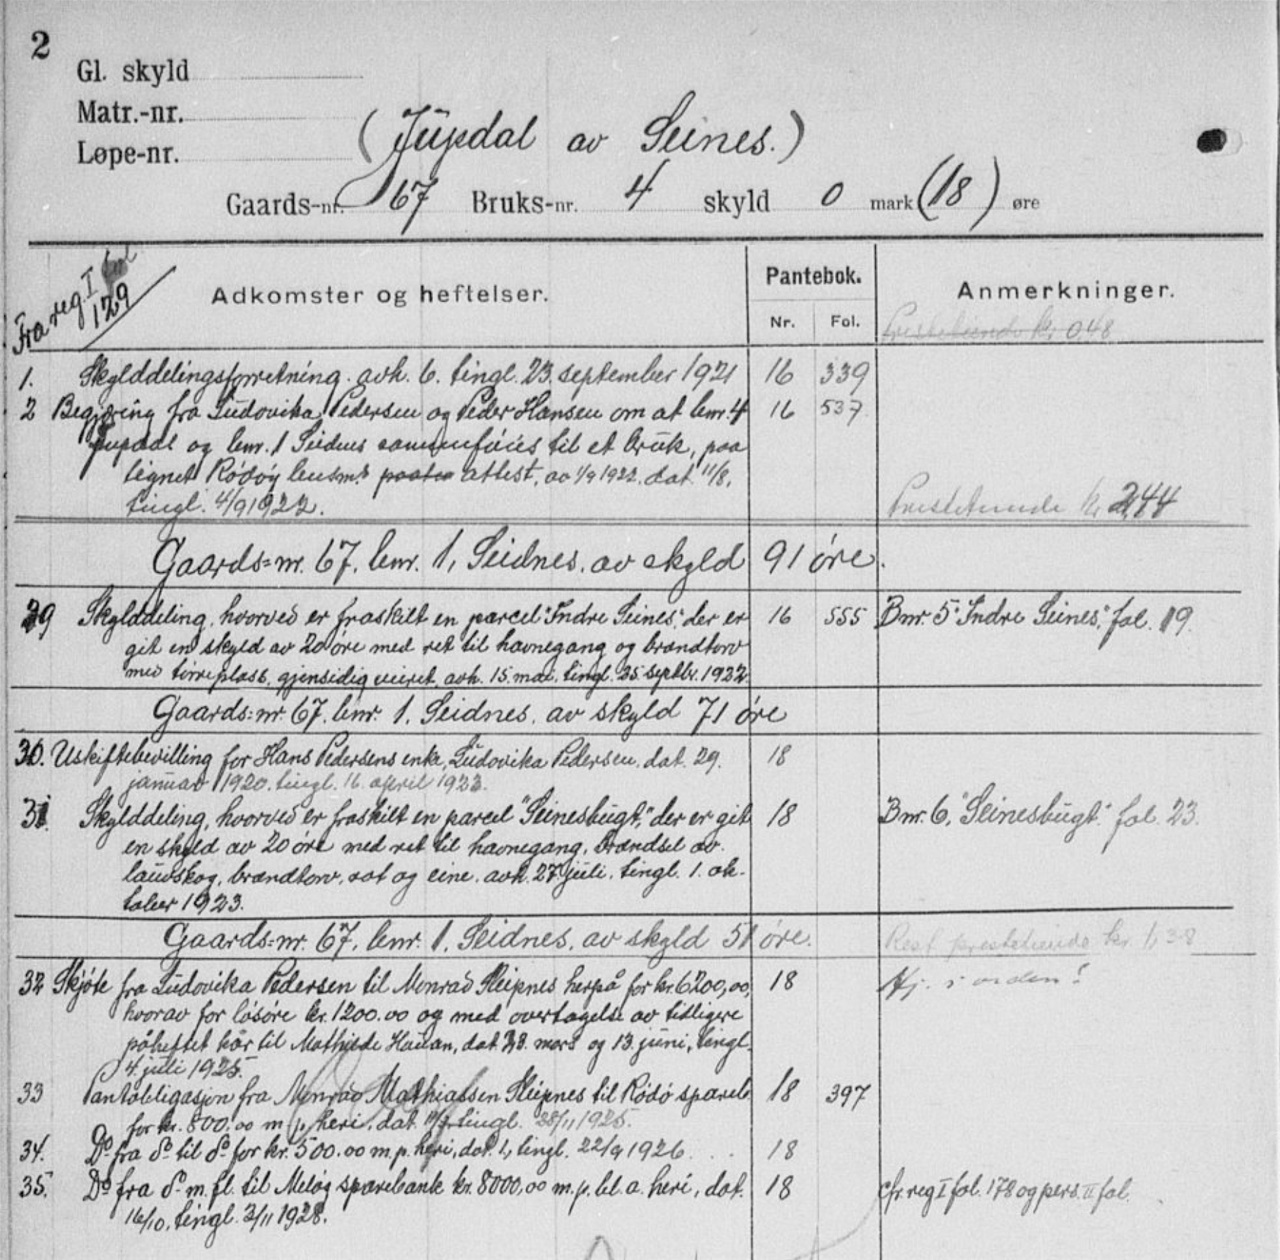 2
Gl. skyld
Matr.-nr.
Løpe-nr.
(Jüpdal av Seines.)
Gaards-nr. 67 Bruks-nr. 4 skyld 0 mark (18) øre
Fra reg. I fol. 129
Adkomster og heftelser. Pantebok. Anmerkninger.
Nr. Fol.
Prestetiende kr. 0,48
1. Skylddelingsforretning. avh. 6. tingl. 23. september 1921 16 339
2 Begjæring fra Lüdovika Pedersen og Peder Hansen om at bnr. 4 16 537
Jupdal og bnr. 1 Seidnes sammenføies til et brük, paa
tegnet Rødøy lensm.s attest, av 1/9 1922. dat. 11/8,
tingl. 4/9 1922.
Prestetiende kr. 2,44
Gaards-nr. 67, bnr. 1, Seidnes. av skyld 91 øre.
29 Skylddeling, hvorved er fraskilt en parcel "Indre Seines," der er 16 555 Bnr. 5 "Indre Seines," fol. 19.
git en skyld av 20 øre med ret til havnegang og brændtorv
med tørreplass, gjensidig veiret. avh. 15. mai. tingl. 25. septbr. 1922.
Gaards-nr. 67. bnr. 1. Seidnes. av skyld 71 øre
30. Uskiftebevilling for Hans Pedersens enke, Lüdovika Pedersen. dat. 29. 18
januar 1920. tingl. 16. april 1923.
31. Skylddeling, hvorved er fraskilt en parcel "Seinesbugt," der er git 18 Bnr. 6, "Seinesbügt." fol. 23.
en skyld av 20 øre med ret til havnegang, brændsel av
lauvskog, brændtorv, rot og eine. avh. 27. juli. tingl. 1. ok-
tober 1923.
Gaards-nr. 67, bnr. 1. Seidnes. av skyld 51 øre.
Rest prestetiende kr. 1,38
32 Skjøte fra Lüdovika Pedersen til Monrad Sleipnes herpå for kr. 6200,00, 18 Hj. i orden!
hvorav for løsøre kr. 1200.00 og med overtagelse av tidligere
påheftet kår til Mathilde Hauan, dat. 23. mars og 13. juni, tingl.
4. juli 1925.
33 Pantobligasjon fra Monrad Mathiassen Sleipnes til Rødø spareb. 18 397
for kr. 800.00 m. p. heri. dat. tingl. 28/11 1925.
34. Do fra do til do for kr. 500.00 m. p. heri, dat. 1, tingl. 22/9 1926. 18
35. Do fra do m. fl. til Meløy sparebank kr. 8000,00 m. p. bl. a. heri, dat. 18 cfr. reg I fol. 178 og pers. II fol.
16/10, tingl. 3/11 1928.